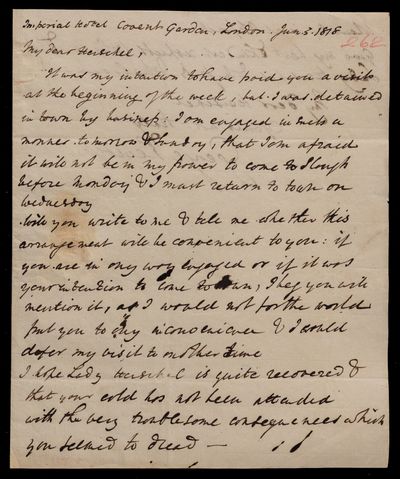 Imperial Hotel Covent Garden, London Jun 5. 1818
262
My dear Herschel,
It was my intention to have paid you a visit
at the beginning of the week, but I was detained
in town by business: I am engaged in such a
manner tomorrow & Sunday, that I am afraid
it will not be in my power to come to Slough
before Monday & I must return to town on
Wednesday
Will you write to me & tell me whether this
arrangement will be convenient to you: if
you are in any way engaged or if it was
your intention to come to town, I beg you will
mention it, as I would not for the world
put you to any inconvenience & I could
defer my visit to another time
I hope Lady Herschel is quite recovered &
that your cold has not been attended
with the very troublesome consequences which
you seemed to dread —